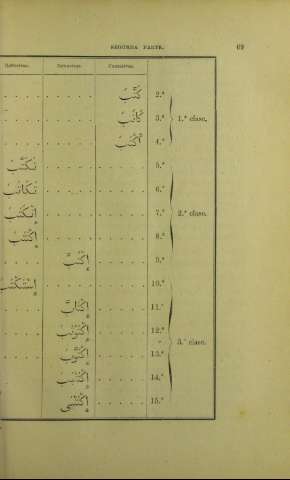 SEGUNDA PARTE. 69
كَتَّبَ 2.ª
كَاتَبَ 3.ª 1.ª clase.
أَكْتَبَ 4.ª
تَكَتَّبَ 5.ª
تَكَاتَبَ 6.ª
اِنْكَتَبَ 7.ª 2.ª clase.
اِكْتَتَبَ 8.ª
اِكْتَبَّ 9.ª
اِسْتَكْتَبَ 10.ª
اِكْتَابَّ 11.ª
اِكْتَوْتَبَ 12.ª
3.ª clase.
اِكْتَوَّبَ 13.ª
اِكْتَنْبَبَ 14.ª
اِكْتَنْبَى 15.ª